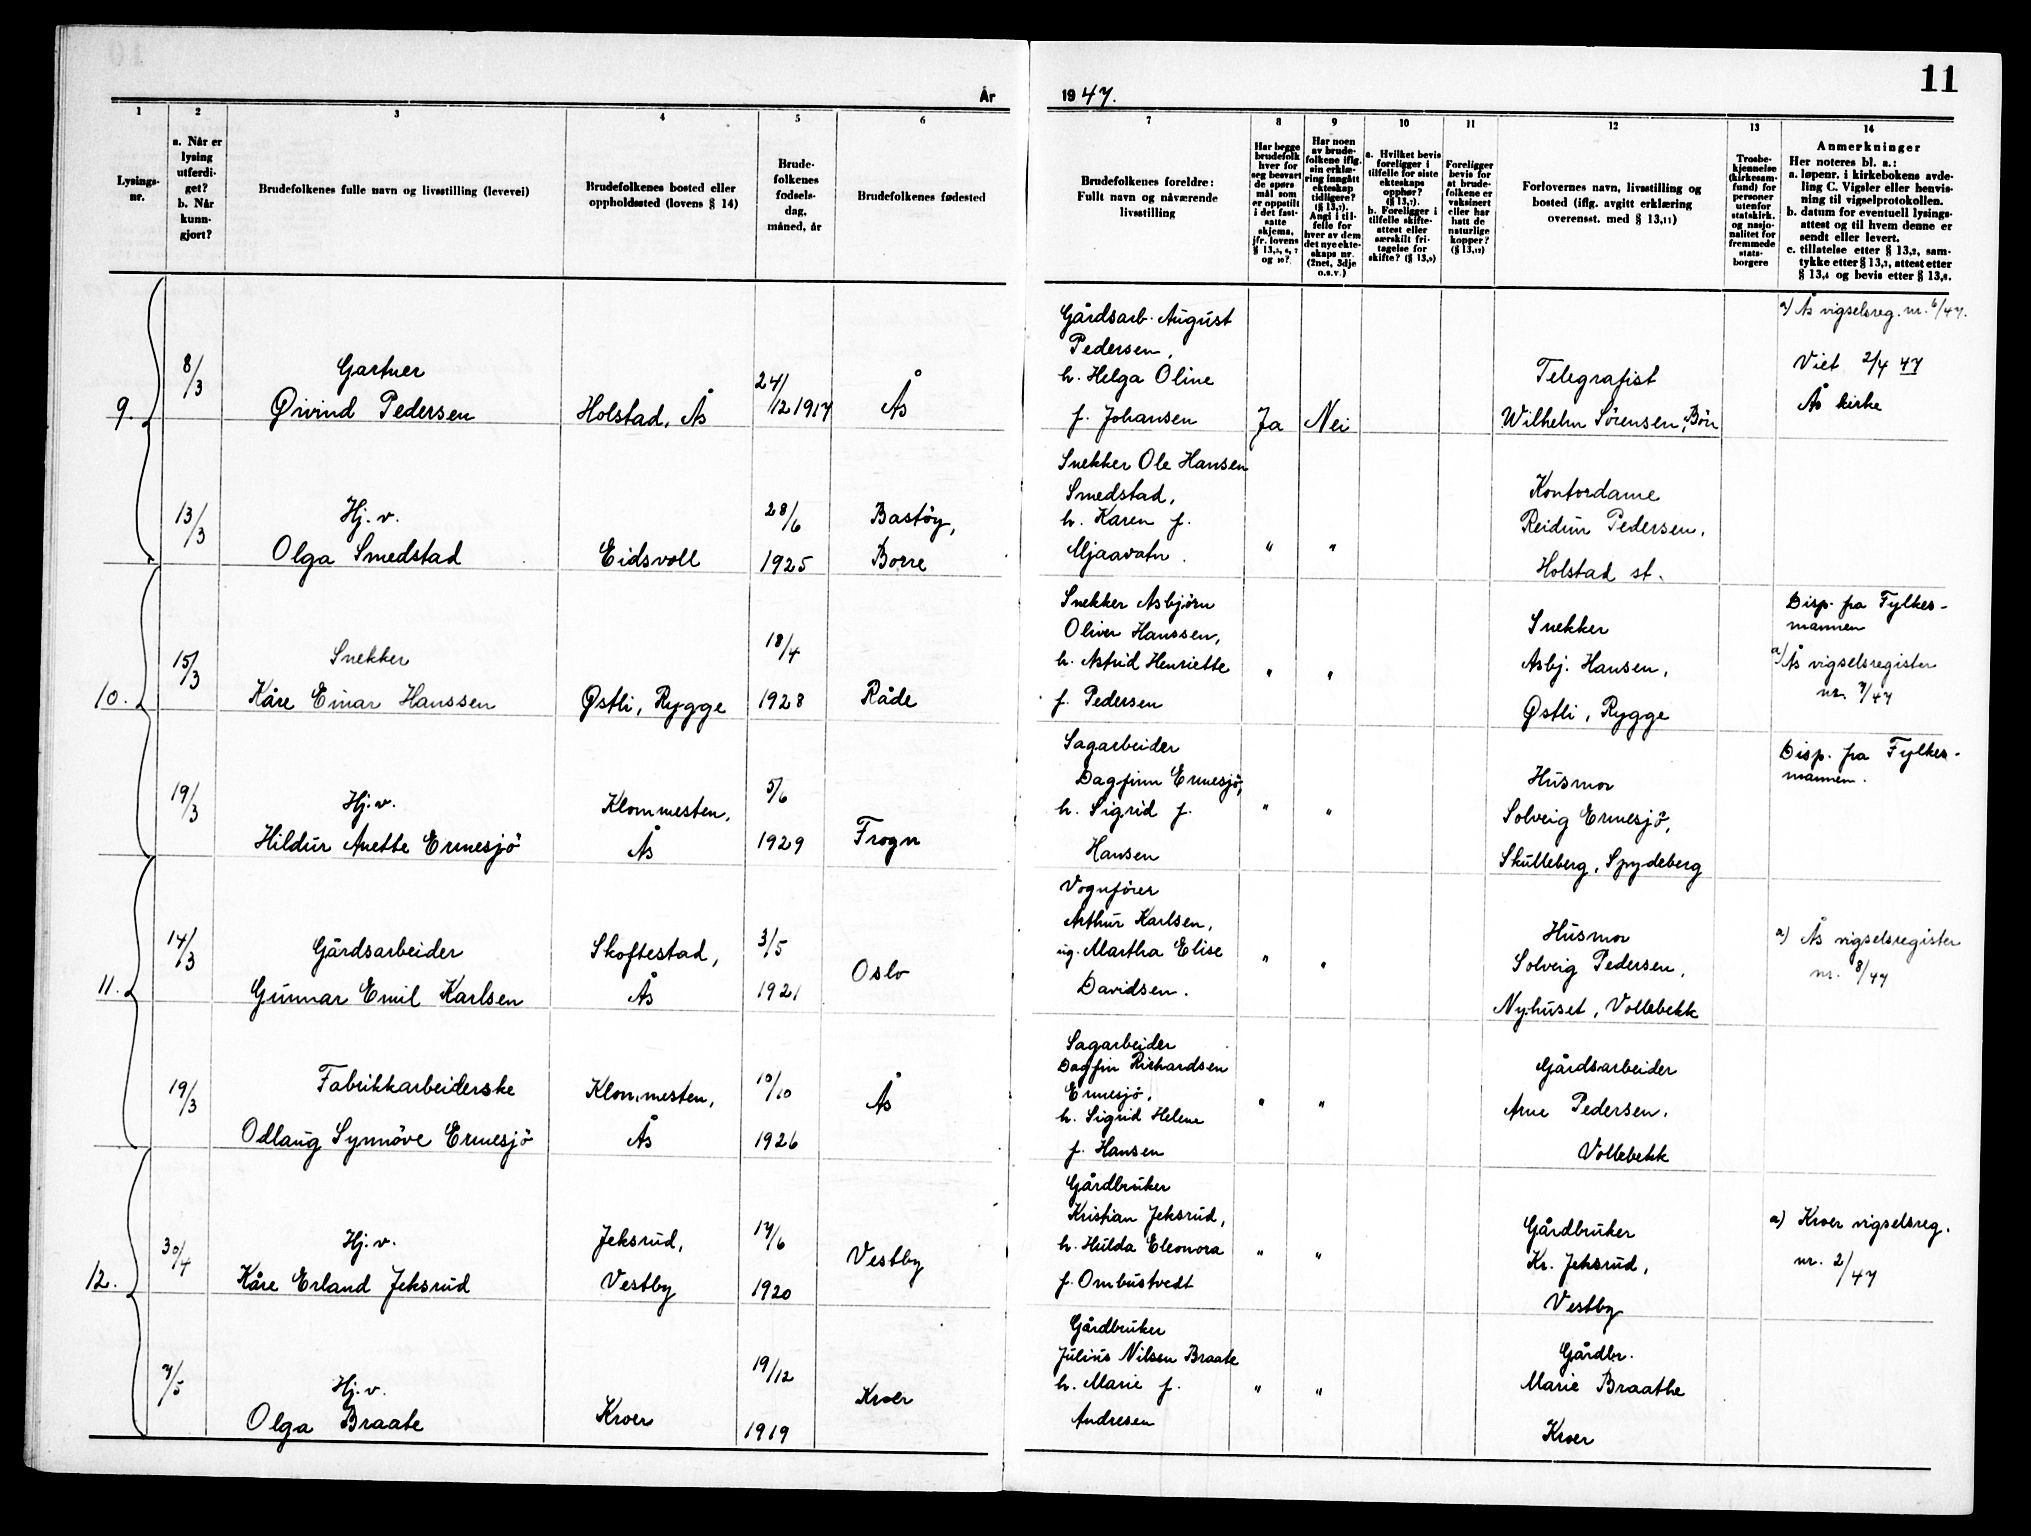 11
År
1947.
1
2
3
4
5
6
7
8
9
10
11
12
13
14
Lysings-
nr.
a. Når er
lysing
utferdi-
get?
b. Når
kunn-
gjort?
Brudefolkenes fulle navn og livsstilling (levevei)
Brudefolkenes bosted eller
oppholdssted (lovens § 14)
Brude-
folkenes
fødsels-
dag,
måned, år
Brudefolkenes fødested
Brudefolkenes foreldre:
Fullt navn og nåværende
livsstilling
Har begge
brudefolk
hver for
seg besvart
de spørs-
mål som
er oppstilt
i det fast-
satte
skjema,
jfr. lovens
Har noen
av brude-
folkene iflg.
sin erklæ-
ring inngått
ekteskap
tidligere?
(§ 13,7).
Angi i til-
felle for
hver av dem
det nye ekte-
skaps nr.
(2net, 3dje
o.s.v.)
a. Hvilket bevis
foreligger i
tilfelle for siste
ekteskaps
opphør?
(§ 13,7).
b. Foreligger i
tilfelle skifte-
attest eller
særskilt fri-
tagelse for
skifte? (§ 13,9)
Foreligger
bevis for
at brude-
folkene er
vaksinert
eller har
hatt de
naturlige
kopper?
(§ 13,12)
Forlovernes navn, livsstilling og
bosted (iflg. avgitt erklæring
overensst. med § 13,11)
Trosbe-
kjennelse
(kirkesam-
fund) for
personer
utenfor
statskirk.
og nasjo-
nalitet for
fremmede
stats-
borgere
Anmerkninger
Her noteres bl. a.:
a. løpenr. i kirkebokens avde-
ling C. Vigsler eller henvis-
ning til vigselprotokollen.
b. datum for eventuell lysings-
attest og til hvem denne er
sendt eller levert.
c. tillatelse etter § 13,2, sam-
tykke etter § 13,3, attest etter
§ 13,4 og bevis etter § 13,8.
9.
8/3
Gartner
Øivind Pedersen
Holstad, Ås
24/12 1917
Ås
Gårdsarb. August
Pedersen,
h. Helga Oline
f. Johansen
Ja
Nei
Telegrafist
Wilhelm Sørensen, Bön
a) Ås vigselsreg. nr. 6/47.
Viet 2/4 47
Ås kirke
13/3
Hj. v.
Olga Smedstad
Eidsvoll
28/6
1925
Bastöy,
Borre
Snekker Ole Hansen
Smedstad,
h. Karen f.
Mjaavatn.
"
"
Kontordame
Reidun Pedersen,
Holstad st.
10.
15/3
Snekker
Kåre Einar Hanssen
Østli, Rygge
18/4
1928
Råde
Snekker Asbjörn
Oliver Hanssen,
h. Astrid Henriette
f. Pedersen
"
"
Snekker
Asbj. Hansen,
Østli, Rygge
Disp. fra Fylkes-
mannen
a) Ås vigselsregister
nr. 7/47
19/3
Hj. v.
Hildur Anette Ermesjö
Klommesten,
Ås
5/6
1929
Frogn
Sagarbeider
Dagfinn Ermesjö,
h. Sigrid f.
Hansen
"
"
Husmor
Solveig Ermesjö,
Skulleberg, Spydeberg
Disp. fra Fylkes-
mannen.
11.
14/3
Gårdsarbeider
Gunnar Emil Karlsen
Skoftestad,
Ås
3/5
1921
Oslo
Vognfører
Arthur Karlsen,
ug. Martha Elise
Davidsen.
"
"
Husmor
Solveig Pedersen,
Nyhuset, Vollebekk
a) Ås vigselsregister
nr. 8/47
19/3
Fabrikkarbeiderske
Odlaug Synnöve Ermesjö
Klommesten,
Ås
10/10
1926
Ås
Sagarbeider
Dagfin Richardsen
Ermesjö,
h. Sigrid Helene
f. Hansen
"
"
Gårdsarbeider
Arne Pedersen,
Vollebekk
12.
30/4
Hj. v.
Kåre Erland Jeksrud
Jeksrud,
Vestby
17/6
1920
Vestby
Gårdbruker
Kristian Jeksrud,
h. Hulda Eleonora
f. Ombustvedt
"
"
Gårdbruker
Kr. Jeksrud,
Vestby
a) Kroer vigselsreg.
nr. 2/47
7/5
Hj. v.
Olga Braate
Kroer
19/12
1919
Kroer
Gårdbruker
Julius Nilsen Braate
h. Marie f.
Andresen
"
"
Gårdbr.
Marie Braathe
Kroer